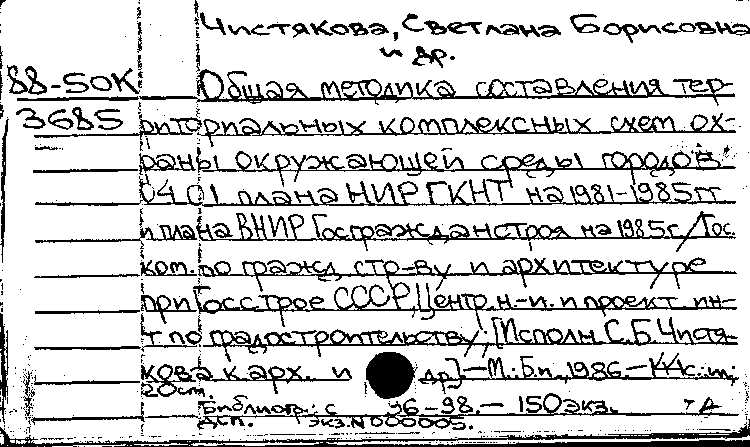 Чистякова, Светлана Борисовна
и др.
88-50К Общая методика составления тер-
3685 риториальных комплексных схем ох-
раны окружающей среды городов
04.01 плана НИР ГКНТ на 1981-1985гг
и плана ВНИР Госгражданстроя на 1985г./Гос.
ком. по гражд. стр-ву и архитектуре
при Госстрое СССР, Центр. н.-и. и проект. ин-
т по градостроительству; [Исполн. С.Б. Чистя-
кова к.арх. и др.]-М.: Б.и., 1986.- с.: ил.;
20см.
Библиогр.: с 96-98.- 150экз.
ДСП. Экз.N000005.